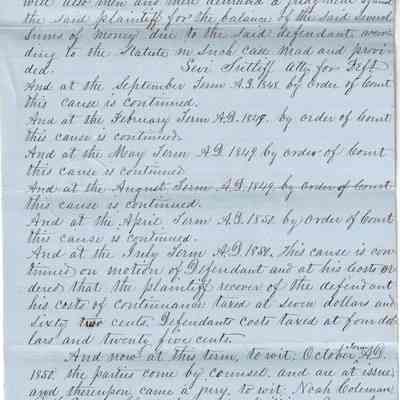 will also then and there demand a judgment against
the said plaintiff for the balance of the said Several
Sums of money due to the said defendant accor
ding to the Statute in Such case mad and provi
ded. Levi Sutliff Atty for Deft
And at the September Term A.D. 1848. by order of Court
this cause is continued.
And at the February Term A.D. 1849. by order of Court
this cause is continued.
And at the May Term A.D 1849 by order of Court
this cause is continued
And at the August Term A.D. 1849 by order of Court
this cause is continued.
And at the April Term A.D. 1850. by Order of Court
this cause is continued.
And at the July Term A.D. 1850. This cause is con
tinued on motion of Defendant and at his Costs or
dered that the plaintiff recover of the defendant
his costs of Continuance taxed at Seven dollars and
Sixty two cents. Defendants costs taxed at four dol
lars and twenty five cents.
And now at this term, to wit; October Term A.D.
1850. the parties come by counsel, and are at issue,
and thereupon came a jury, to wit; Noah Coleman